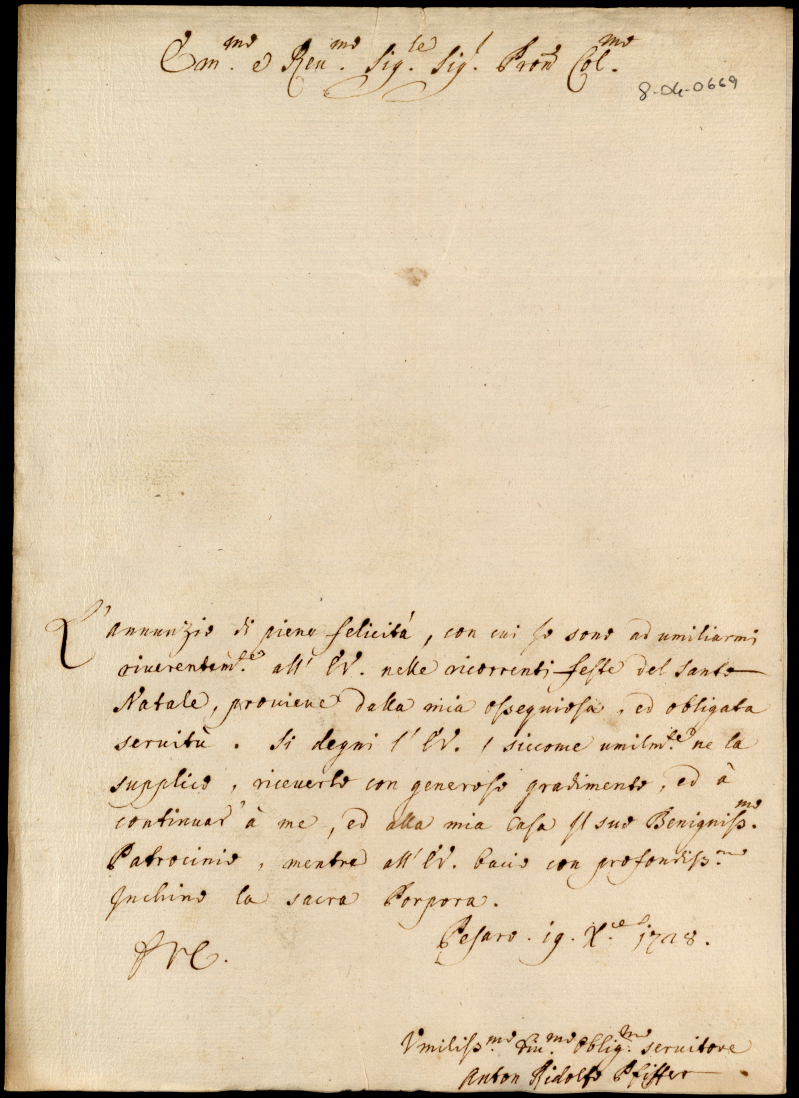 Em.mo e Reu.mo Sig.re Sig.r Pron Col.mo
8-04-0669
L'annunzio di piena felicità, con cui Io sono ad umiliarmi
riuerentem.te all' EV. nelle ricorrenti feste del Santo
Natale, prouiene dalla mia ossequiosa, ed obligata
seruitù. Si degni l' EV. ( siccome umilm.te ne la
supplico, riceuerlo con generoso gradimento, ed à
continuar' à me, ed alla mia Casa Il suo Benigniss.mo
Patrocinio, mentre all' EV. bacio con profondiss.mo
Inchino la sacra Porpora.
Pesaro. 19. X.re 1728.
Vmiliss.mo Diu.mo Oblig.mo seruitore
Anton Ridolfo Pfiffer